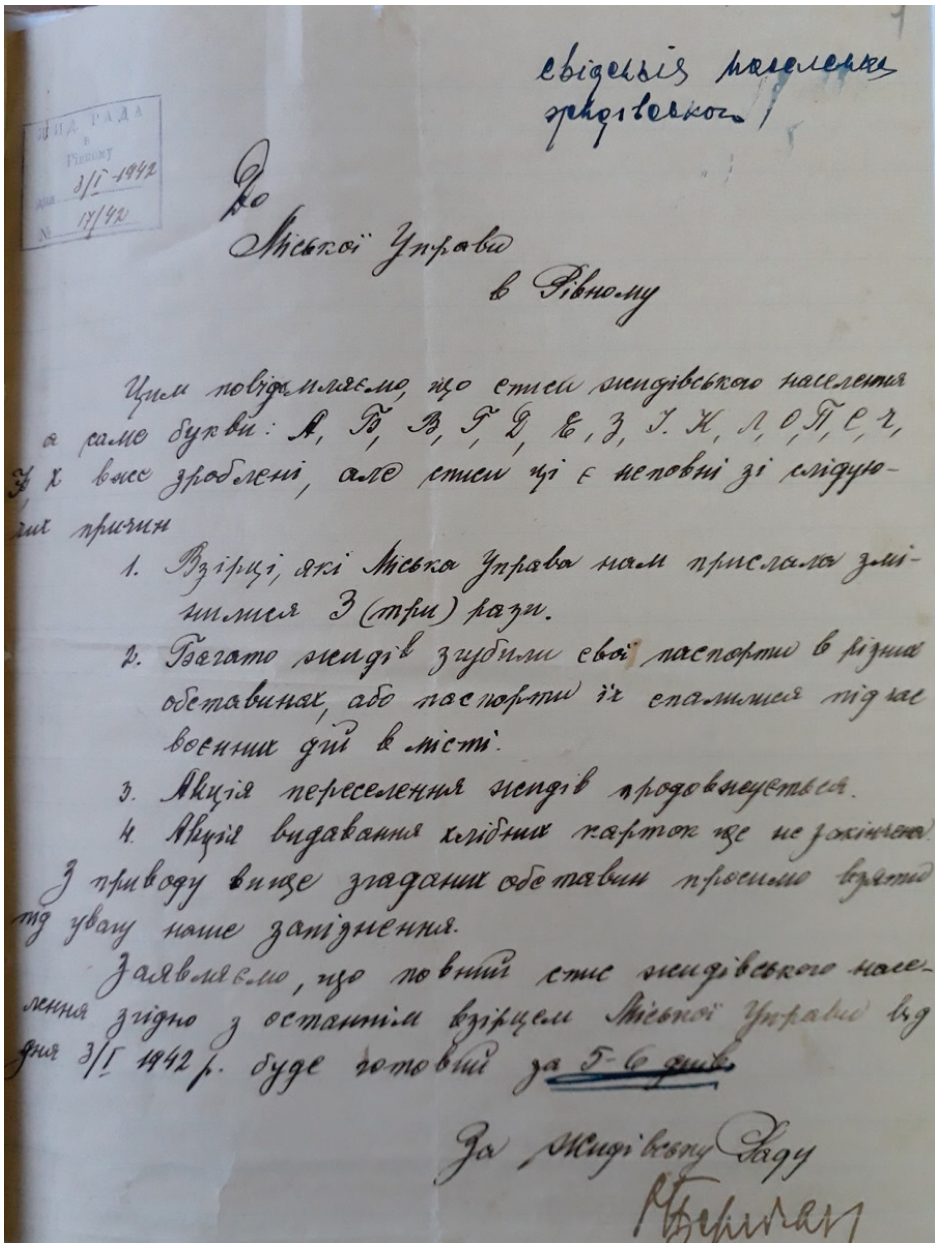 евіденція населення
жидівського
ЖИД. РАДА
в
Рівному
дня 3/I-1942
№ 17/42
До
Міської Управи
в Рівному
Цим повідомляємо, що списи жидівського населення
а саме букви: А, Б, В, Г, Д, Е, З, І. К, Л, О, П, С, Ч,
Х вже зроблені, але списи ці є неповні зі слідую-
чих причин
1. Взірці, які Міська Управа нам прислала змі-
нилися 3 (три) рази.
2. Багато жидів згубили свої паспорти в різних
обставинах, або паспорти їх спалилися під час
воєнних дій в місті.
3. Акція переселення жидів продовжується.
4. Акція видавання хлібних карток ще не закінчена.
З приводу вище згаданих обставин просимо взяти
під увагу наше запізнення.
Заявляємо, що повний спис жидівського насе-
лення згідно з останнім взірцем Міської Управи від
дня 3/I 1942 р. буде готовий за 5-6 днів.
За жидівську Раду